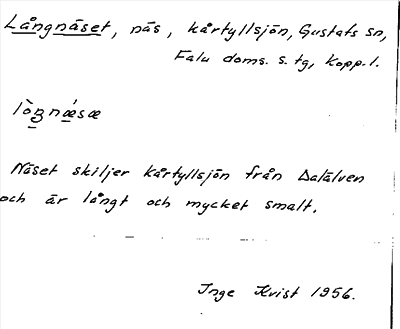 Långnäset, näs, kårtyllsjön, Gustafs sn,
Falu doms. s. tg, Kopp. l.
lòŋnǽsæ
Näset skiljer kårtyllsjön från Dalälven
och är långt och mycket smalt.
Inge Kvist 1956.